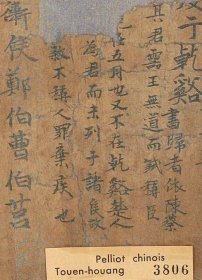 于乾谿書歸者依陳蔡
其君靈王無道而弑稱臣
在五月也又不在乾谿楚人
為君而未列于諸侯故
殺不稱人罪棄疾也
衛侯鄭伯曹伯莒
Pelliot chinois
Touen-houang 3806